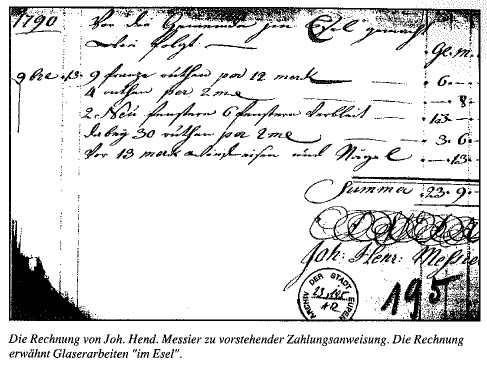 1790 Vor die Gemeinde im Esel gemacht
Wie folgt
Gl. m.
9bre 13. 9 frantze ruthen per 12 merk — 6 —
4 ruthen per 2 me — 8.
2 Neü fenstern 6 fenstern Verbleit — 12 —
dabey 30 ruthen per 2 me — 3. 6.
Vor 13 merk windeisen und Nägel — 13.
Summa 23. 9.
Joh: Henr: Messier
ARCHIV DER STADT EUPEN
195
Die Rechnung von Joh. Hend. Messier zu vorstehender Zahlungsanweisung. Die Rechnung
erwähnt Glaserarbeiten "im Esel".